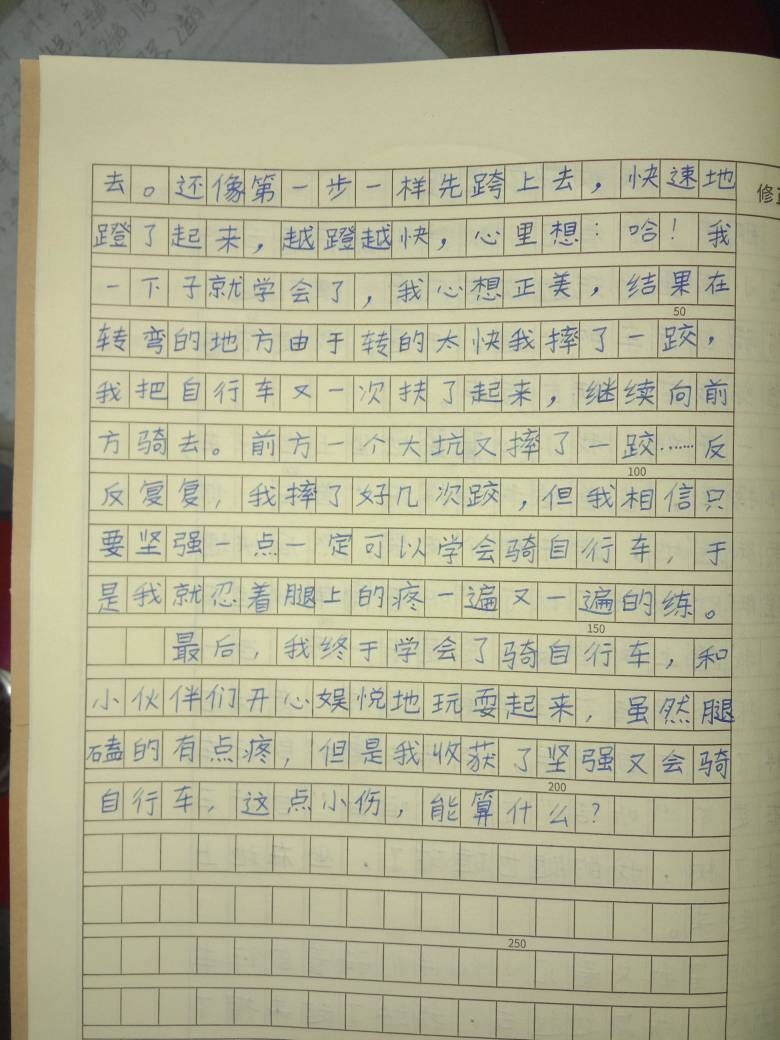 去。还像第一步一样先跨上去，快速地
修
蹬了起来，越蹬越快，心里想：哈！我
一下子就学会了，我心想正美，结果在
50
转弯的地方由于转的太快我摔了一跤，
我把自行车又一次扶了起来，继续向前
方骑去。前方一个大坑又摔了一跤……反
100
反复复，我摔了好几次跤，但我相信只
要坚强一点一定可以学会骑自行车，于
是我就忍着腿上的疼一遍又一遍的练。
150
最后，我终于学会了骑自行车，和
小伙伴们开心娱悦地玩耍起来，虽然腿
磕的有点疼，但是我收获了坚强又会骑
200
自行车，这点小伤，能算什么？
250